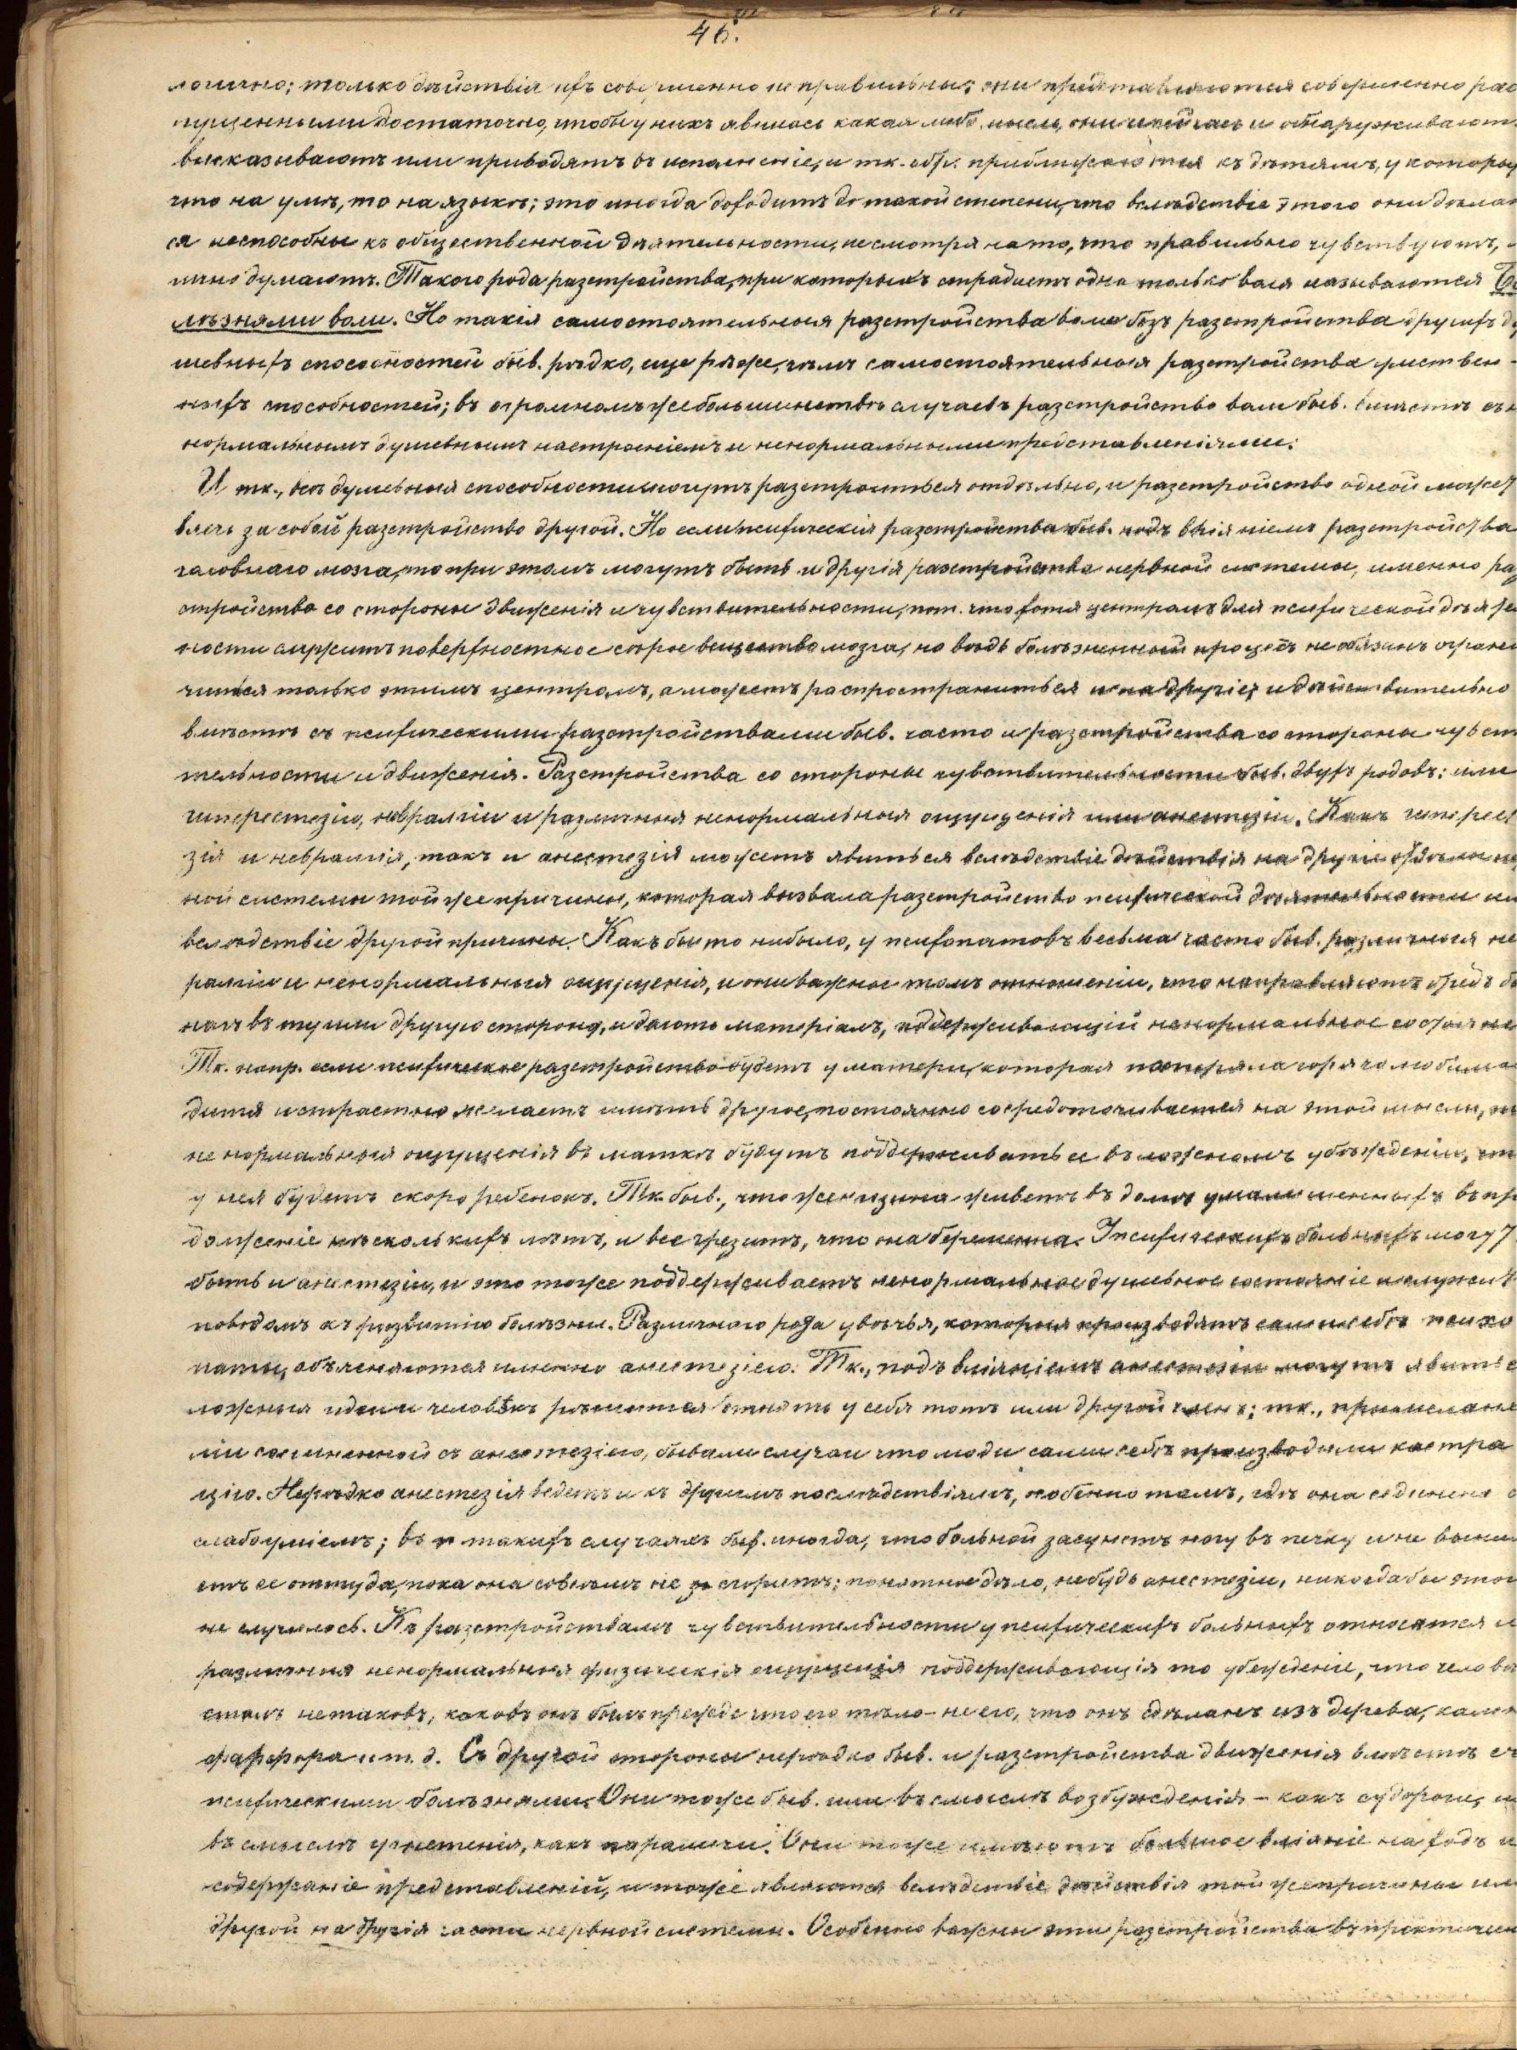 46.
логично; только дѣйствія ихъ совершенно не правильны; они представляются совершенно рас
пущенными достаточно, чтобы у нихъ явилась какая либо мысль, они и сейчасъ и обнаруживаютъ
высказываютъ или приводятъ въ исполненіе, и тк. обр. приближаются къ дѣтямъ, у которы
что на умѣ, то на языкѣ; это иногда доходитъ до такой степени, что вслѣдствіе этого они дѣлаю
ся неспособны къ общественной дѣятельности, несмотря на то, что правильно чувствуютъ,
лично думаютъ. Такого рода разстройства, при которыхъ страдаетъ одна только воля называются Бо
лѣзнями воли. Но такія самостоятельныя разстройства воли безъ разстройства другихъ ду
шевныхъ способностей быв. рѣдко, еще рѣже, чѣмъ самостоятельныя разстройства умствен-
ныхъ способностей; въ огромномъ же большинствѣ случаевъ разстройство воли быв. вмѣстѣ съ н
нормальнымъ душевнымъ настроеніемъ и ненормальными представленіями.
И тк., всѣ душевныя способности могутъ разстроиться отдѣльно, и разстройство одной может
влечь за собой разстройство другой. Но если психическія разстройства быв. подъ вліяніемъ разстройства
головнаго мозга, то при этомъ могутъ быть и другія разстройства нервной системы, именно раз
стройства со стороны движенія и чувствительности, пот. что хотя центромъ для психической дѣяте
ности служитъ поверхностное сѣрое вещество мозга, но вѣдь болѣзненный процесъ не обязанъ ограни
читься только этимъ центромъ, а можетъ распространиться и на другіе; и дѣйствительно
вмѣстѣ съ психическими разстройствами быв. часто и разстройства со стороны чувст
тельности и движенія. Разстройства со стороны чувствительности быв. двухъ родовъ: или
гиперестезіи, невралгіи и различныя ненормальныя ощущенія или анестезіи. Какъ гиперест
зія и невралгія, такъ и анестезія можетъ явиться вслѣдствіе дѣйствія на другіе отдѣлы не
ной системы той же причины, которая вызвала разстройство психической дѣятельности или
вслѣдствіе другой причины. Какъ бы то ни было, у психопатовъ весьма часто быв. различныя не
ралгіи и ненормальныя ощущенія, и они важны томъ отношеніи, что направляютъ бредъ бо
наго въ ту или другую сторону, и даютъ матеріалъ, поддерживающій ненормальное состояніе
Тк. напр. если психическое разстройство будетъ у матери, которая потеряла горячо любимое
дитя и страстно желаетъ имѣть другое, постоянно сосредоточивается на этой мысли, то
не нормальныя ощущенія въ маткѣ будутъ поддерживать ее въ ложномъ убѣжденіи, что
у нея будетъ скоро ребенокъ. Тк. быв., что женщина живетъ въ домѣ умалишенныхъ въ пр
долженіе нѣсколькихъ лѣтъ, и все грезитъ, что она беременна. У психическихъ больныхъ могут
быть и анестезіи, и это тоже поддерживаетъ ненормальное душевное состояніе и служит
поводомъ къ развитію болѣзни. Различнаго рода увѣчья, которыя производятъ сами себѣ психо
паты, объясняются именно анестезіею. Тк., подъ вліяніемъ анестезіи могутъ явиться
ложныя идеи и человѣкъ рѣшится отнять у себя тотъ или другой членъ; тк., при меланх
ліи соединенной съ анестезіею, бывали случаи что люди сами себѣ производили кастра
цію. Нерѣдко анестезія ведетъ и къ другимъ послѣдствіямъ, особенно тамъ, гдѣ она соединена с
слабоуміемъ; въ такихъ случаяхъ быв. иногда, что больной засунетъ ногу въ печку и не выни
етъ ее оттуда, пока она совсѣмъ не сгоритъ; понятное дѣло, не будь анестезіи, никогда бы этого
не случилось. Къ разстройствамъ чувствительности у психическихъ больныхъ относятся и
различныя ненормальныя физическія ощущенія поддерживающія то убѣжденіе, что чело вѣ
сталъ не таковъ, каковъ онъ былъ прежде что его тѣло – не его, что онъ сдѣланъ изъ дерева, камн
фарфора и т. д. Съ другой стороны нерѣдко быв. и разстройства движенія вмѣстѣ съ
психическими болѣзнями. Они тоже быв. или въ смыслѣ возбужденія – какъ судороги, и
въ смыслѣ угнетенія, какъ параличи. Они тоже имѣютъ большое вліяніе на ходъ и
содержаніе представленій, и тоже являются вслѣдствіе дѣйствія той же причины или
другой на другія части нервной системы. Особенно важны эти разстройства въ практичес